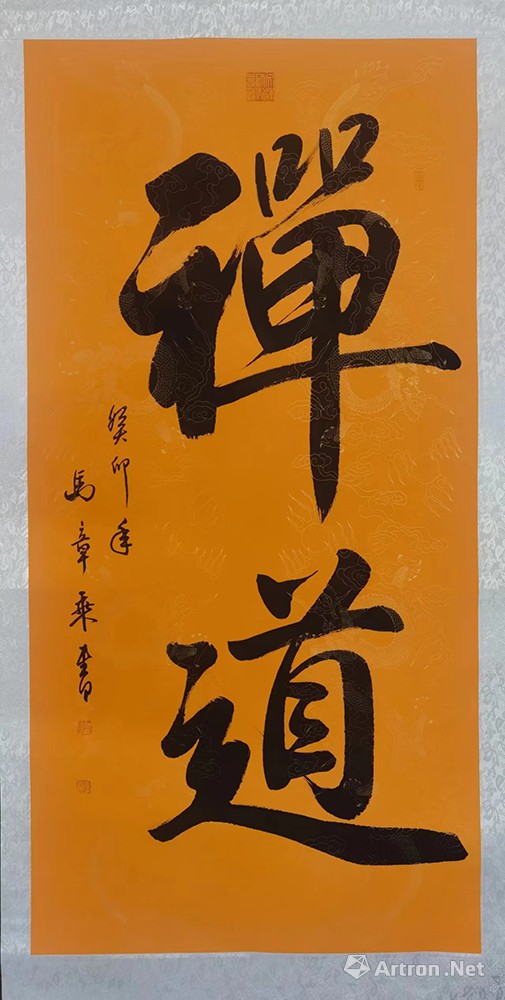 禪道
癸卯年
馬章乘書
Artron.Net